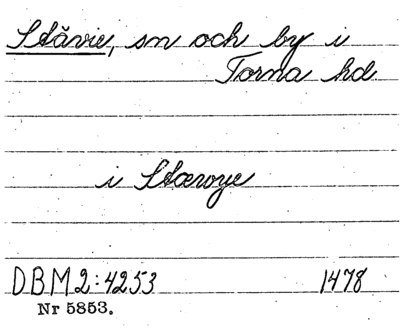 Stävie, sn och by i
Torna hd
i Stæwye
DBM2:4253 1478
Nr 5853.